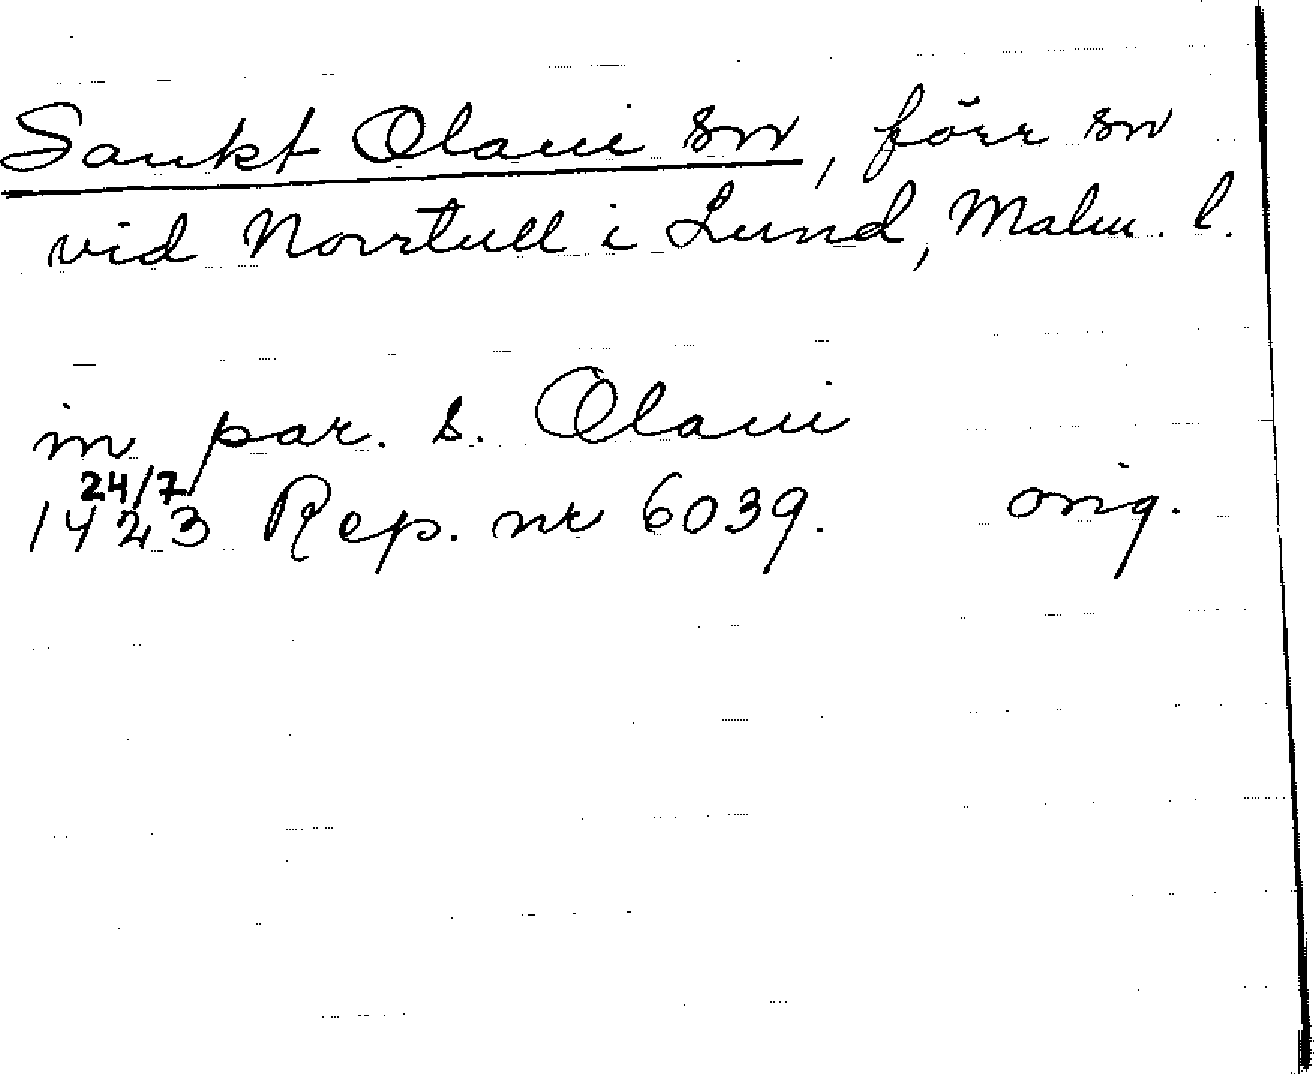 Sankt Olavi sn, förr sn
vid Norrtull i Lund, Malm. l.
in par. s. Olavi
24/7
1423 Rep. nr 6039. orig.